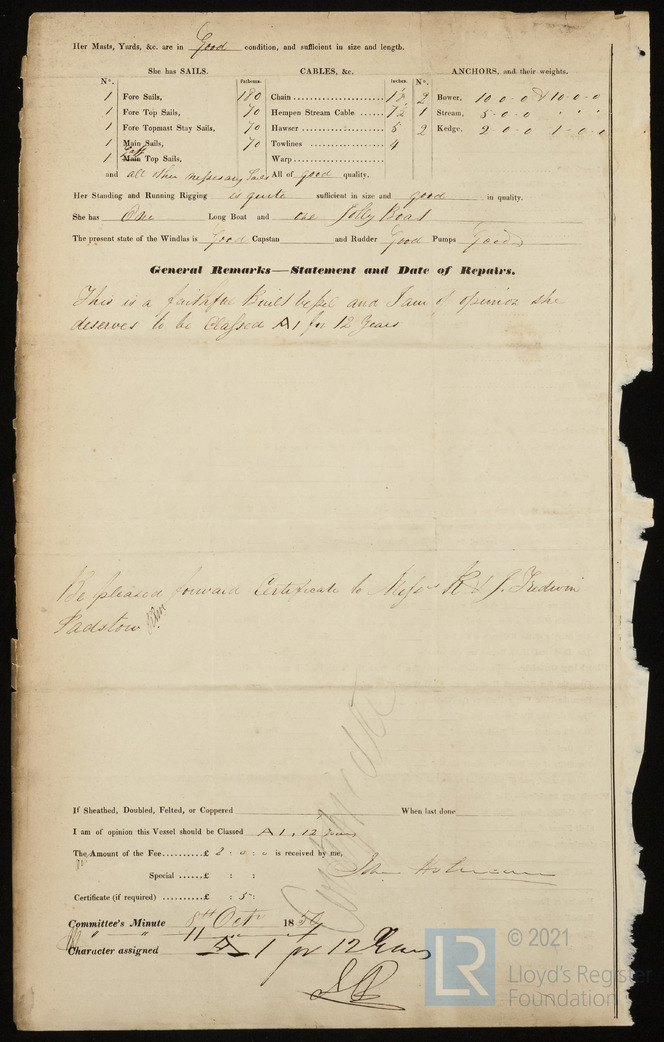 Her Masts, Yards, &c. are in Good condition, and sufficient in size and length.
She has SAILS.
CABLES, &c.
ANCHORS, and their weights.
No.
Fathoms.
Inches.
No.
1 Fore Sails, 180 Chain 2 Bower, 10-0-0 & 10-0-0
1 Fore Top Sails, 70 Hempen Stream Cable 7½ 1 Stream, 5-0-0
1 Fore Topmast Stay Sails, 70 Hawser 5 2 Kedge, 2-0-0 1-0-0
1 Main Sails, 70 Towlines 4
1 Gaff Main Top Sails, Warp
and all other nessesary Sails All of good quality.
Her Standing and Running Rigging is quite sufficient in size and good in quality.
She has One Long Boat and one Jolly Boat
The present state of the Windlas is Good Capstan and Rudder Good Pumps Good
General Remarks—Statement and Date of Repairs.
This is a faithful Built Vessel and I am of opinion she
deserves to be Classed A1 for 12 Years
Be pleased forward Certificate to Messrs R & J. Tredwin
Padstow
If Sheathed, Doubled, Felted, or Coppered When last done
I am of opinion this Vessel should be Classed A1, 12 years
The Amount of the Fee..........£ 2 : 0 : 0 is received by me,
Special ......£ : :
Certificate (if required) ......£ : 5 :
Committee's Minute 8th Oct 185
11
Character assigned A 1 for 12 Years
LR © 2021
Lloyd's Register
Foundation